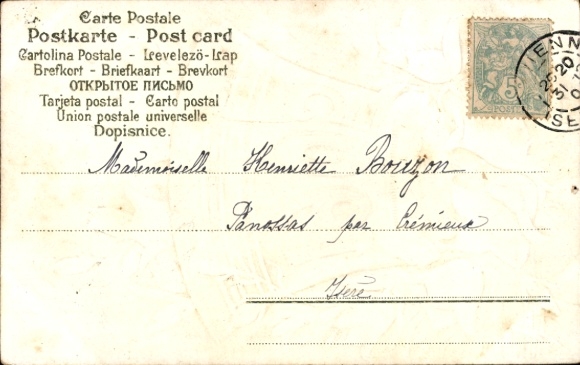 Carte Postale
Postkarte - Post card
Cartolina Postale - Levelező-Lap
Brefkort - Briefkaart - Brevkort
ОТКРЫТОЕ ПИСЬМО
Tarjeta postal - Carto postal
Union postale universelle
Dopisnice.
5
POSTES
IENN
20
25
31
ISE
Mademoiselle Henriette Bouzon
Panossas par Crémieux
Isère